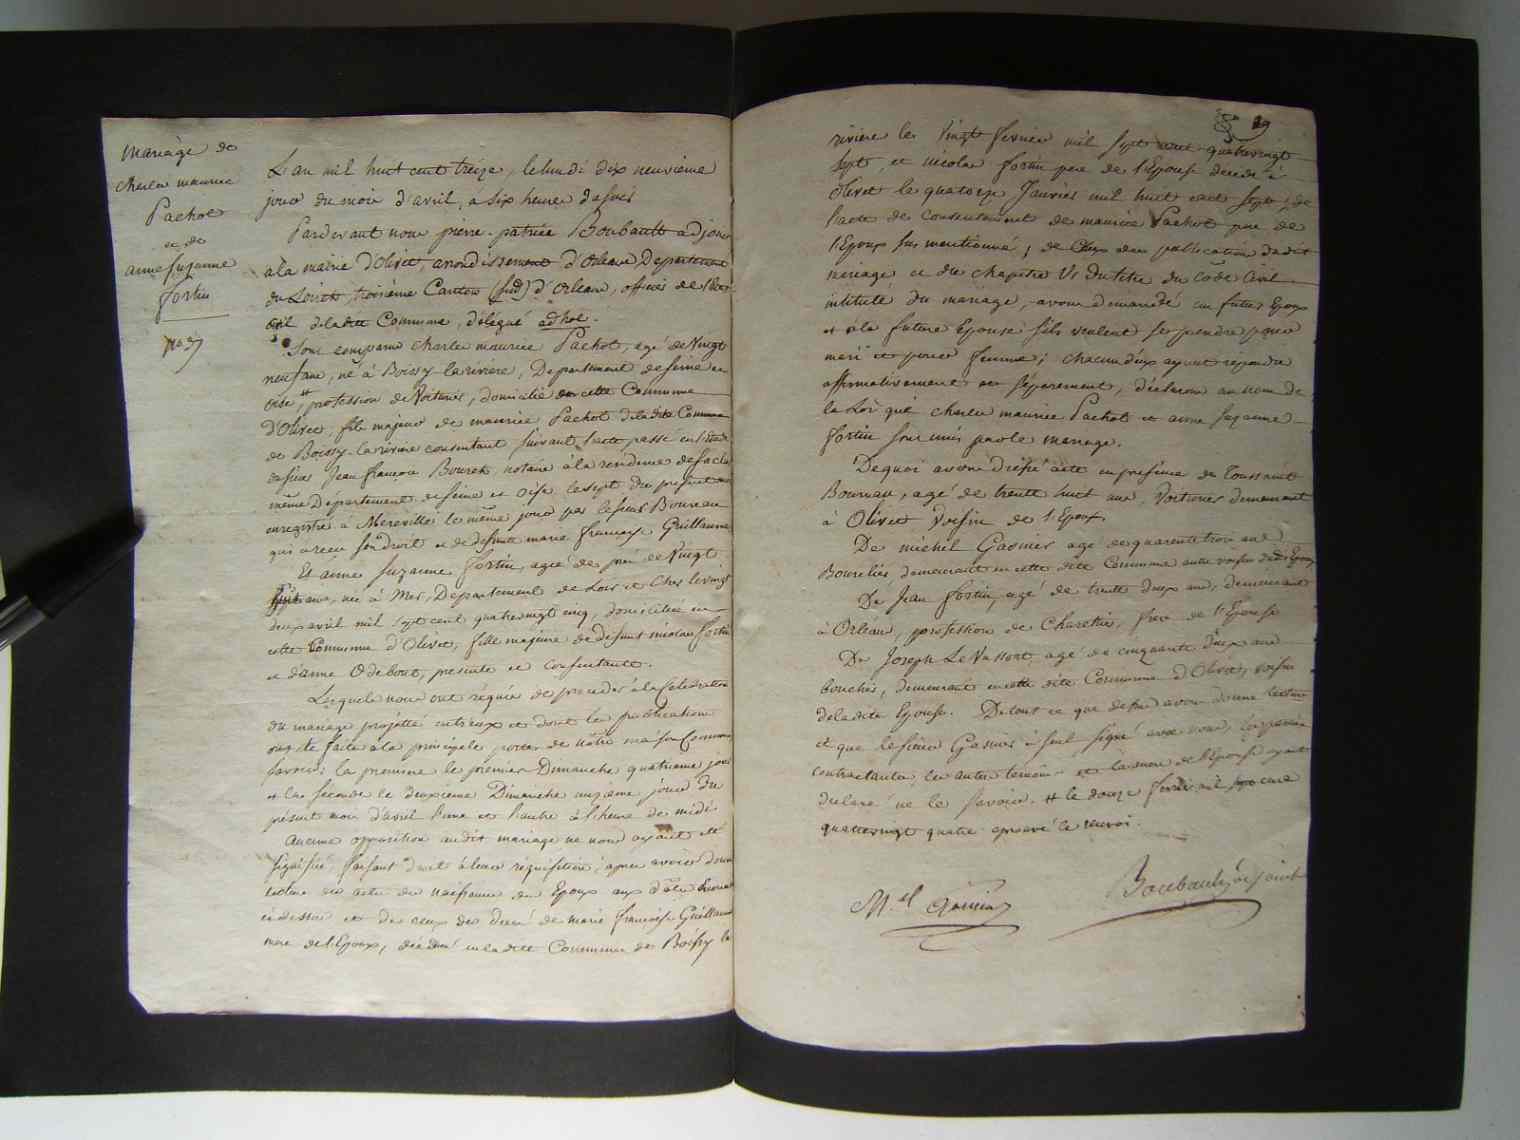 mariage de
charles maurice
Pachot
et de
anne suzanne
fortin
L'an mil huit cent treize, le lundi dix neuvième
jour du mois d'avril, à six heures du soir
Pardevant nous pierre patrice Boubault adjoint
à la mairie d'Olivet, arrondissement d'Orléans, Departement
du Loiret, troisième Canton (sud) d'Orléans, officier de l'état
civil de ladite Commune, délégué ad hoc.
Sont comparu charles maurice Pachot, agé de vingt
neuf ans, né à Boissy-la rivière, Departement de seine et
oise #, profession de Voiturier, domicilié en cette Commune
d'Olivet, fils majeur de maurice Pachot de ladite Commune
de Boissy-la rivière consentant suivant l'acte passé en l'étude
du sieur Jean françois Bouret, notaire à la residence de
même Département de seine et Oise le sept du présent mois
enregistré à Mereville le même jour par le sieur Boureau
qui a reçu son droit et de defunte marie françoise Guillaume
Et anne suzanne fortin, agée de près de Vingt
huit ans, née à Mer, Departement de Loir et Cher le vingt
deux avril mil sept cent quatrevingt cinq, domiciliée en
cette Commune d'Olivet, fille majeure de defunt nicolas fortin
et d'anne Odebout, presente et consentante.
Lesquels nous ont réquis de proceder à la Célébration
du mariage projetté entr'eux et dont les publications
ont été faites à la principale porte de nôtre maison Commune
savoir: la premiere le premier Dimanche quatrieme jour
et la seconde le deuxieme Dimanche onzieme jour du
présent mois d'avril l'une et l'autre à l'heure de midi
aucune opposition audit mariage ne nous ayant été
signifiée, faisant droit à leur réquisition, après avoir donné
lecture des actes de naissance des Epoux aux dates énoncées
ci dessus et de ceux des decès de marie françoise Guillaume
mere de l'Epoux, décédée en ladite Commune de Boissy la
29
riviere les vingt fevrier mil sept cent quatrevingt
sept, et nicolas fortin pere de l'Epouse decedé à
Olivet le quatorze Janvier mil huit cent sept; de
l'acte de consentement de maurice Pachot pere de
l'Epoux sus mentionné; de deux des publications dudit
mariage et du chapitre VI du titre du Code Civil
intitulé du mariage, avons demandé au futur Epoux
et à la future Epouse s'ils veulent se prendre pour
mari et pour femme; chacun d'eux ayant répondu
affirmativement et séparement, déclarons au nom de
la Loi que charles maurice Pachot et anne suzanne
fortin sont unis par le mariage.
De quoi avons dressé acte en présence de Toussaint
Bourneau, agé de trente huit ans, Voiturier demeurant
à Olivet Voisin de l'Epoux
De michel Gasnier agé de quarante trois ans
Bourelier, demeurant en cette dite Commune autre voisin dudit Epoux
De Jean fortin, agé de trente deux ans, demeurant
à Orléans, profession de Charetier, frere de l'Epouse
De Joseph Le Vassort, agé de cinquante deux ans
boucher, demeurant en cette dite Commune d'Olivet, voisin
de ladite Epouse. De tout ce que dessus avons donné lecture
et que le sieur Gasnier a seul signé avec nous, les parties
contractantes, les autres temoins et la mere de l'Epouse ayant
declaré ne le savoir. # le douze fevrier mil sept cent
quatrevingt quatre approuvé le renvoi.
M.el Gasnier
Boubault adjoint